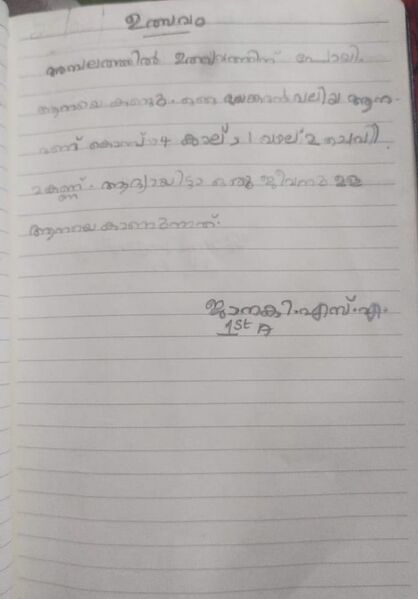 ഉത്സവം
അമ്പലത്തിൽ ഉത്സവത്തിന് പോയി.
ആനയെ കണ്ടു. ഒരു വലിയ ആന
രണ്ട് കൊമ്പ് 4 കാല് 1 വാല് 2 ചെവി
2 കണ്ണ്. ആദ്യായിട്ടാ ഒരു ജീവനു ള്ള
ആനയെ കാണുന്നത്.
ജാനകി.എസ്.എ.
1st A